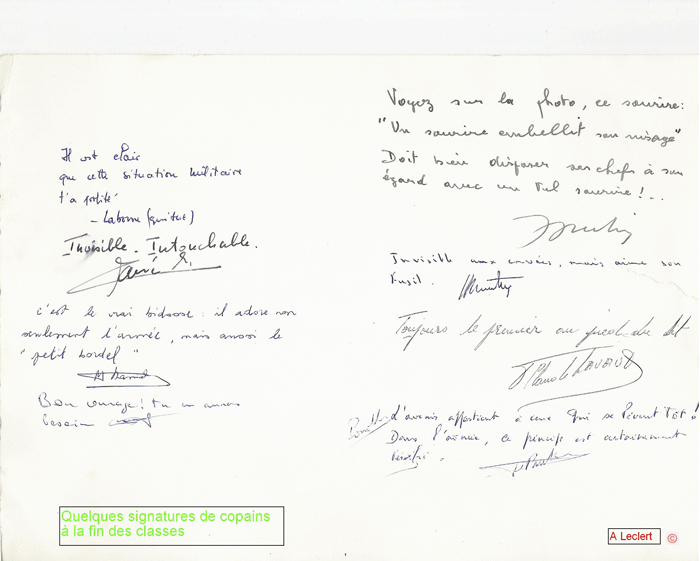 Il est clair
que cette situation militaire
t'a
Invisible - Intouchable.
c'est le vrai bidasse : il adore non
seulement l'armée, mais aussi le
"petit bordel"
Bon courage ! tu en auras
besoin
Voyez sur la photo, ce sourire :
"Un sourire embellit son visage"
Doit bien disposer ses chefs à son
égard avec un tel sourire !..
Invisible aux corvées, mais aime son
fusil.
Toujours le premier au pieu du lit
L'avenir appartient à ceux qui se lèvent tôt !
Dans l'armée, ce principe est certainement
Quelques signatures de copains
à la fin des classes
A Leclert ©